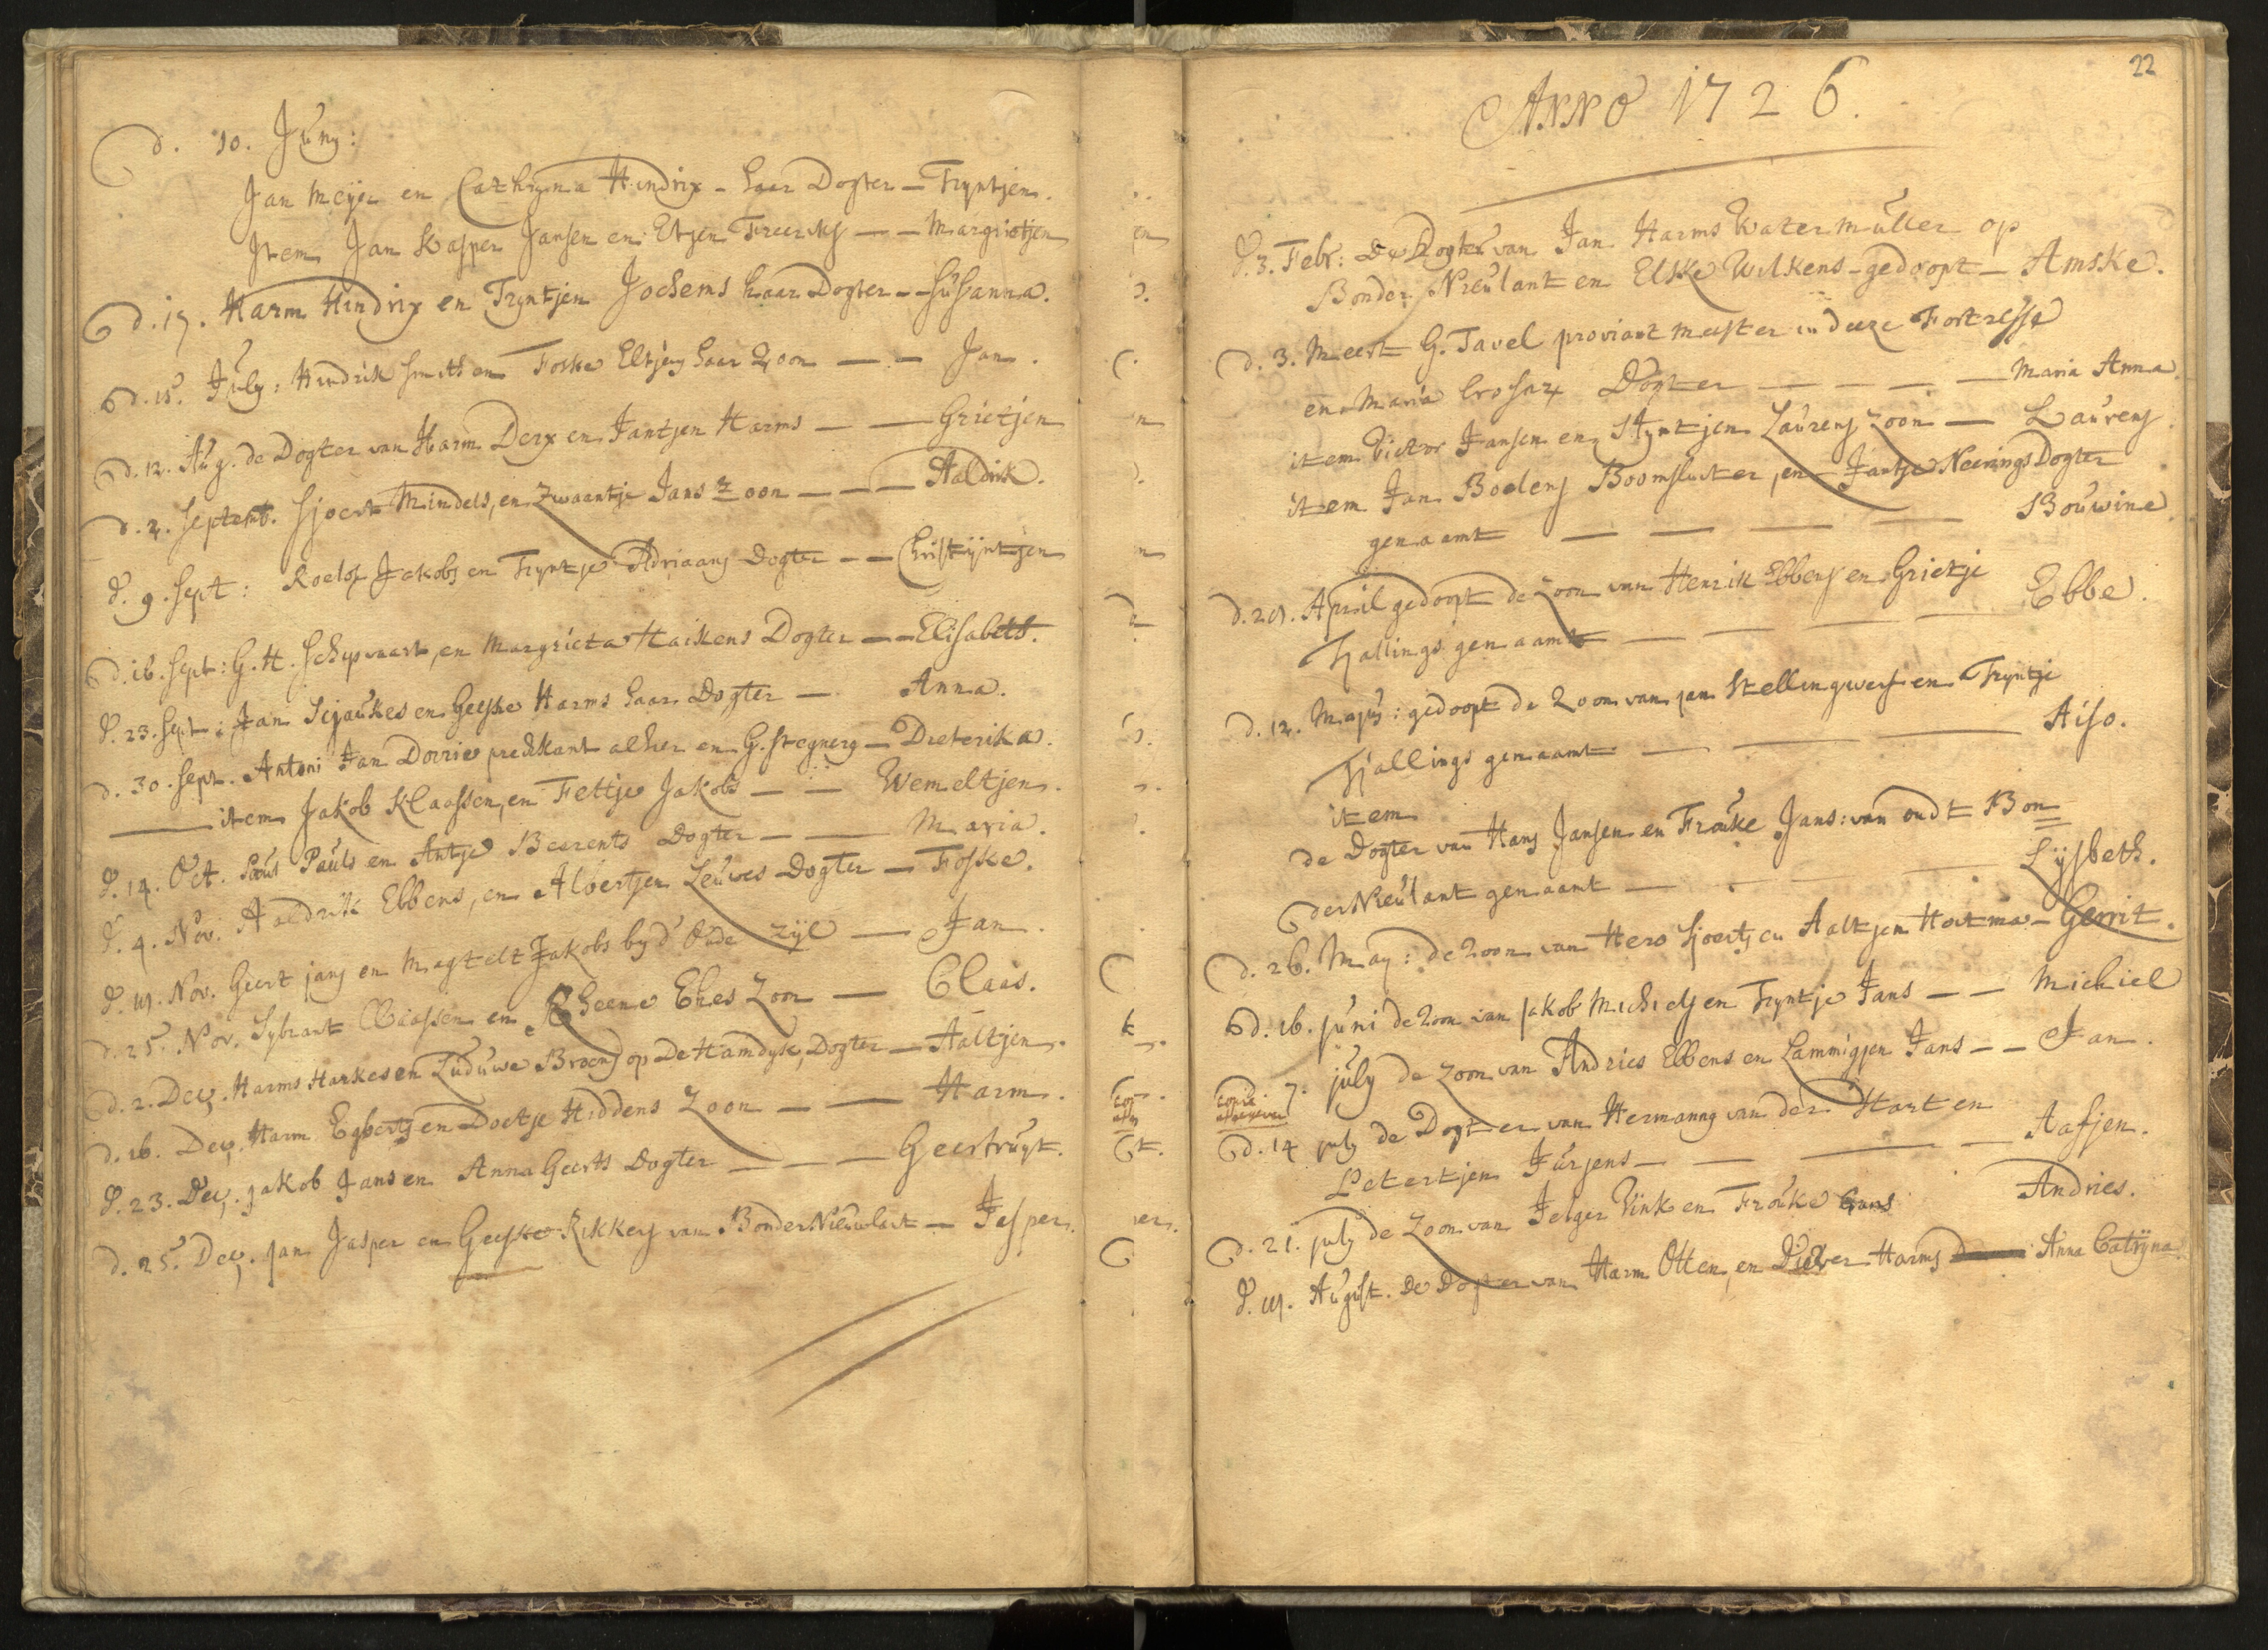 d. 10. Juny:
Jan Meijer en Cathryna Hindrix - haar Dogter - Tryntjen.
Item Jan Kasper Jansen en Etjen Freerks - - Margrietjen
d. 17. Harm Hindrix en Tryntjen Jochems haar Dogter - - Susanna.
d. 15. July: Hindrik Smith en Foske Eltjens haar Zoon - - Jan.
d. 12. Aug. de Dogter van Harm Derx en Jantjen Harms - - Grietjen
d. 2. Septemb. Sjoert Mindels, en Zwaantje Jans Zoon - - - Aaldrik.
d. 9. Sept: Roelof Jakobs en Tryntje Adriaans Dogter - - Christijntjen
d. 16. Sept: G. H. Schipvaart, en Margrieta Haikens Dogter - - Elisabeth.
d. 23. Sept: Jan Sijaukes en Geeske Harms haar Dogter - Anna.
d. 30. Sept. Antoni Jan Dorrie predikant alhier en G. - Dieterika.
item Jakob Klaassen, en Fettje Jakobs - - Wemeltjen.
d. 14. Oct. Pauls en Antje Beerents Dogter - - Maria.
d. 4. Nov. Aaldrik Ebbens, en Albertjen Leuwes Dogter - Foske.
d. Nov. Geert jans en Magtelt Jakobs by d' Oude zijl - Jan.
d. 25. Nov. Sybrant Claassen en Ekes Zoon - Claas.
d. 2. Dec. Harms Harkes en Luduwe op De Hamdyk, Dogter - Aaltjen.
d. 16. Dec. Harm Egberts en Doetje Hiddens Zoon - - Harm.
d. 23. Dec. jakob Jans en Anna Geerts Dogter - - - Geertruyt.
d. 25. Dec. Jan Jasper en Geeske Rikkers van BonderNieuwlant - Jesper.
22
ANNO 1726.
d. 3. Febr: De Dogter van Jan Harms Watermuller op
Bonder Nieulant en Elske Wilkens - gedoopt - Amske.
d. 3. Meert G. Tavel proviant meester in deeze Fortresse
en Maria Dogter - - - - Maria Anna.
item Victor Jansen en Styntjen Laurens zoon - Laurens
item Jan Boelens Boomsluter, en Jantje Neerings Dogter
genaamt - - - - Bouwine.
d. April gedoopt de Zoon van Henrik Ebbens en Grietje
Tjallings genaamt - - - - Ebbe.
d. 12. Majus: gedoopt de Zoon van jan Stellingwerf en Tryntje
Tjallings genaamt - - - Aiso.
item
de Dogter van Hans Jansen en Frouke Jans: van oudt Bon
der Nieulant genaamt - - - Lijsbeth.
d. 26. May: de Zoon van Hero Sjoerts en Aaltjen Hoitma - Gerrit.
d. 16. juni de Zoon van jakob Michiels en Tryntje Jans - - Michiel
copia afgegeven 7. july de Zoon van Andries Ebbens en Lammigjen Jans - - Jan.
d. 14 july de Dogter van Hermanns van der Hart en
Petertjen Jurjens - - - - Aafjen.
d. 21. july de Zoon van Jelger Vink en Frouke Andries.
d. August. De Dogter van Harm Otten, en Harms Anna Catrijna